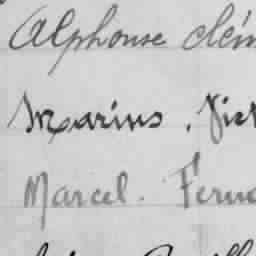 Alphonse clém
Marius. Vict
Marcel. Ferna